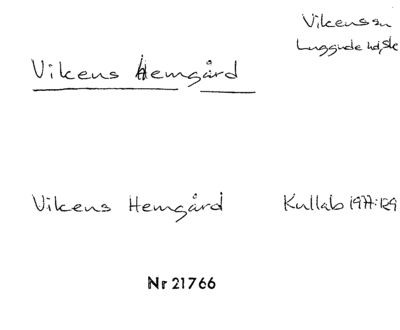 Vikens sn
Luggude hd, Sk
Vikens Hemgård
Vikens Hemgård Kullab 1977:129
Nr 21766